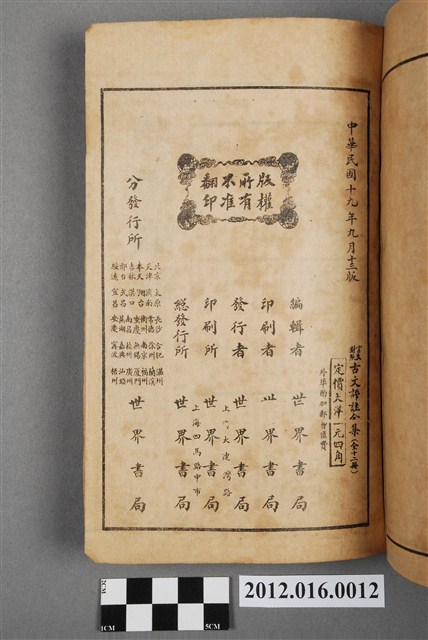 中華民國十九年九月十三版
言文對照
古文評註全集(全十二冊)
定價大洋一元四角
外埠酌加郵費匯費
版權所有
不准翻印
編輯者 世界書局
印刷者 世界書局
發行者 世界書局
印刷所 世界書局
上海大連灣路
總發行所 世界書局
上海四馬路中市
分發行所
世界書局
2CM
1CM
5CM
2012.016.0012